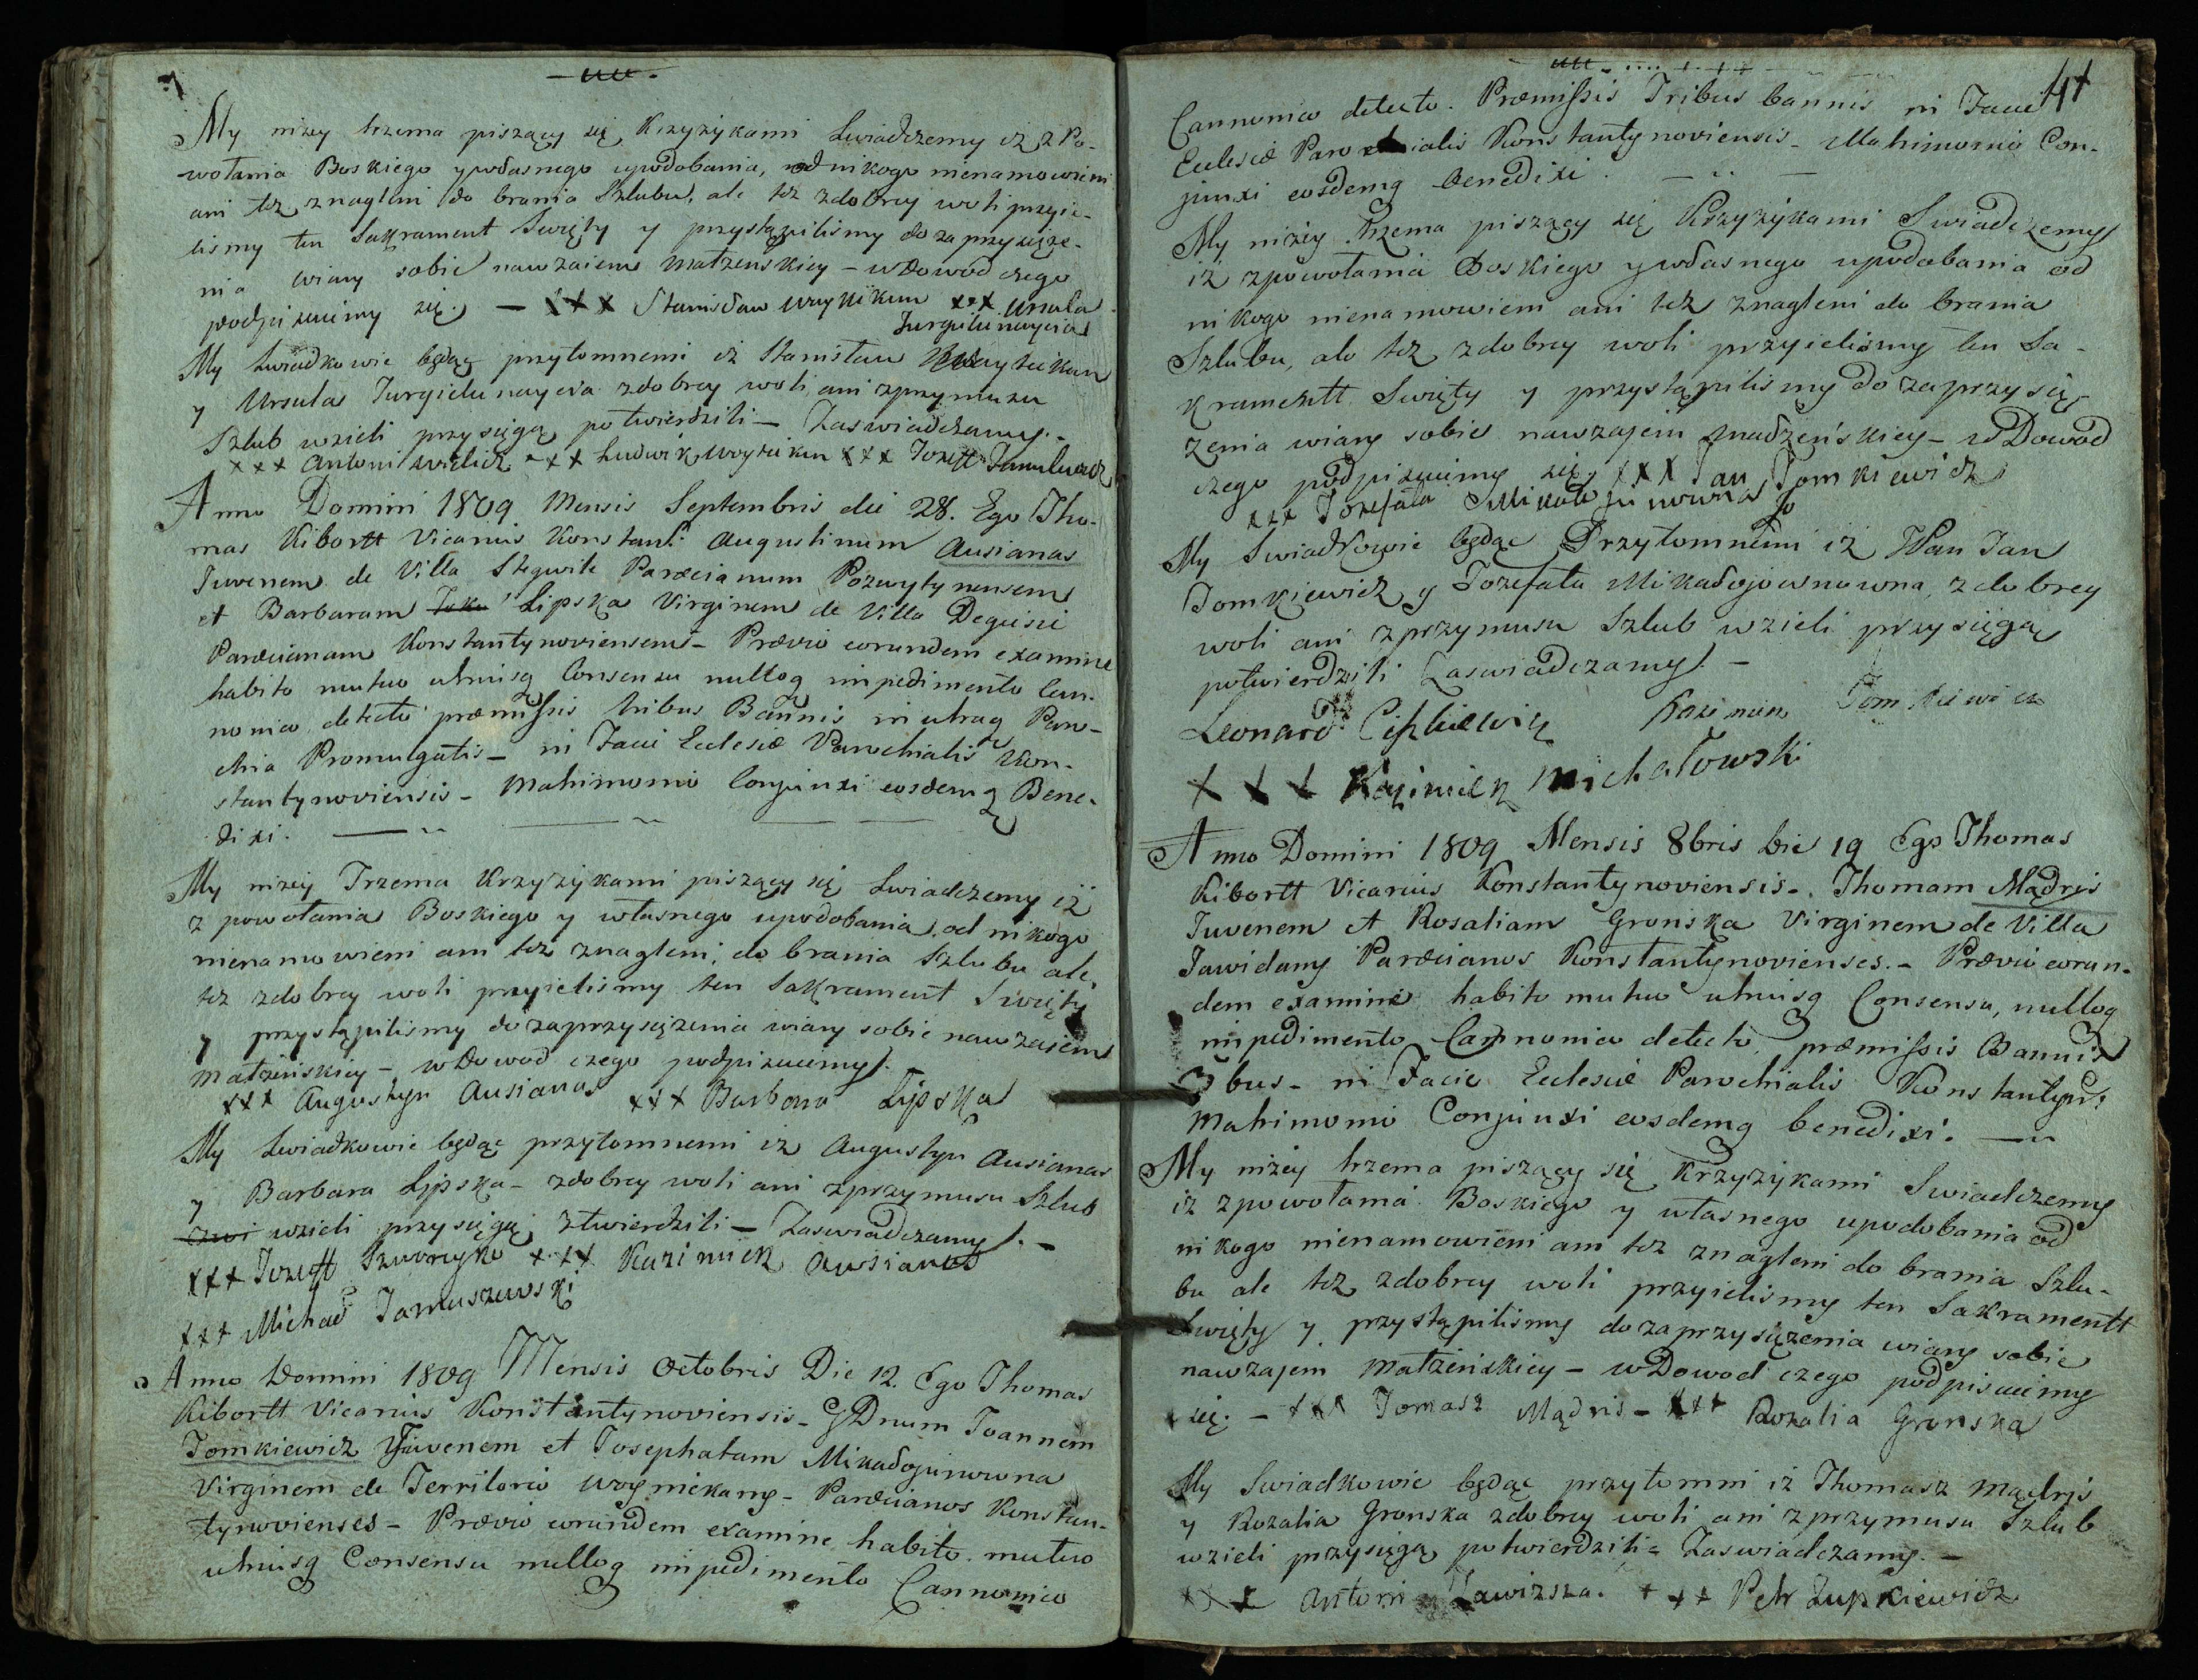 My niżey trzema piszący się Krzyżykami Swiadczemy iż z Po-
wołania Boskiego y własnego upodobania, od nikogo nienamowieni
ani też znagleni do brania Szlubu, ale też zdobrey woli przyie-
lismy ten Sakrament Swięty y przystąpilismy do zaprzysięże-
nia wiary sobie nawzaiem małżenskiey - w Dowod czego
podpisuiemy się. — xxx Stanisław Woytkikun xxx Ursula
Jurgielunaycia
My Swiadkowie będąc przytomnemi iż Stanisław
y Ursula Jurgielunaycia zdobrey woli ani zprzymusu
Szlub wzieli przysięgą potwierdzili — Zaswiadczamy. -
xxx Antoni xxx Ludwik xxx Jozeff
Anno Domini 1809 Mensis Septembris die 28. Ego Tho-
mas Kibortt Vicarius Konstant: Augustinum Ausianas
Juvenem de Villa Stegwile Parœcianum Pozwytynensem
et Barbaram Lipska Virginem de Villa Degiesie
Parœcianam Konstantynoviensem - Prævio eorundem examine
habito mutuo utriusq Consensu nulloq impedimento Can-
nonico detecto præmissis tribus Bannis in utraq Paro-
chia Promulgatis - in Facie Eclesiæ Parochialis Kon-
stantynoviensis - Matrimonio Conjunxi eosdemq Bene-
dixi. —
My niżey Trzema Krzyżykami piszący się Swiadczemy iż
z powołania Boskiego y własnego upodobania, od nikogo
nienamowieni ani też znagleni, do brania Szlubu ale,
też zdobrey woli przyielismy ten Sakrament Swięty
y przystąpilismy do zaprzysiężenia wiary sobie nawzaiem
małżeńskiey - w Dowod czego podpisuiemy.
xxx Augustyn Ausianas xxx Barbara Lipska
My Swiadkowie będąc przytomnemi iż Augustyn Ausianas
y Barbara Lipska - zdobrey woli ani zprzymusu Szlub
wzieli przysięgą ztwierdzili — Zaswiadczamy. —
xxx Jozeff xxx Kazimierz Ausianas
xxx Michał Januszewski
Anno Domini 1809 Mensis Octobris Die 12. Ego Thomas
Kibortt Vicarius Konstantynoviensis - GDnum Joannem
Tomkiewicz Juvenem et Josephatam Mikałojunowna
Virginem de Territorio Woyniekany - Parœcianos Konstan-
tynovienses - Prævio eorundem examine, habito mutuo
utriusq Consensu nulloq impedimento Cannonico
41
Cannonico detecto. Præmissis Tribus bannis in Facie
Eclesiæ Parochialis Konstantynoviensis - Matrimonio Con-
junxi eosdemq benedixi. —
My niżey trzema piszący się Krzyżykami Swiadczemy
iż zpowołania Boskiego y własnego upodobania od
nikogo nienamowieni ani też znagleni do brania
Szlubu, ale też zdobrey woli przyielismy ten Sa-
kramentt Swięty y przystąpilismy do zaprzysię-
żenia wiary sobie nawzajem małżeńskiey - w Dowod
czego podpisuiemy się xxx Jan Tomkiewicz
xxx Jozefata Mikałojunowna
My Swiadkowie będąc Przytomnemi iż JPan Jan
Tomkiewicz y Jozefata Mikałojownowna, zdobrey
woli ani zprzymusu Szlub wzieli przysięgą
potwierdzili Zaswiadczamy. —
Leonard Kazimierz Tomkiewicz
x x x Kazimierz Michałowski
Anno Domini 1809 Mensis 8bris Die 19 Ego Thomas
Kibortt Vicarius Konstantynoviensis -. Thomam Mądris
Juvenem et Rosaliam Gronska Virginem de Villa
Jawidany Parœcianos Konstantynovienses. - Prævio eorun-
dem examine habito mutuo utriusq Consensu, nulloq
impedimento Cannonico detecto, præmissis Bannis
3bus - in Facie Eclesiæ Parochialis Konstantyn:
Matrimonio Conjunxi eosdemq benedixi. —
My niżey trzema piszący się Krzyżykami Swiadczemy
iż zpowołania Boskiego y własnego upodobania od
nikogo nienamowieni ani też znagleni do brania Szlu-
bu ale też zdobrey woli przyielismy ten Sakramentt
Swięty y przystąpilismy do zaprzysiężenia wiary sobie
nawzajem małżeńskiey - w Dowod czego podpisuiemy
się. - xxx Tomasz Mądris - xxx Rozalia Gronska
My Swiadkowie będąc przytomni iż Thomasz Mądris
y Rozalia Gronska zdobrey woli ani zprzymusu Szlub
wzieli przysięgą potwierdzili - Zaswiadczamy. —
xxx Antoni Zawiszza. xxx Petr Zupkiewicz